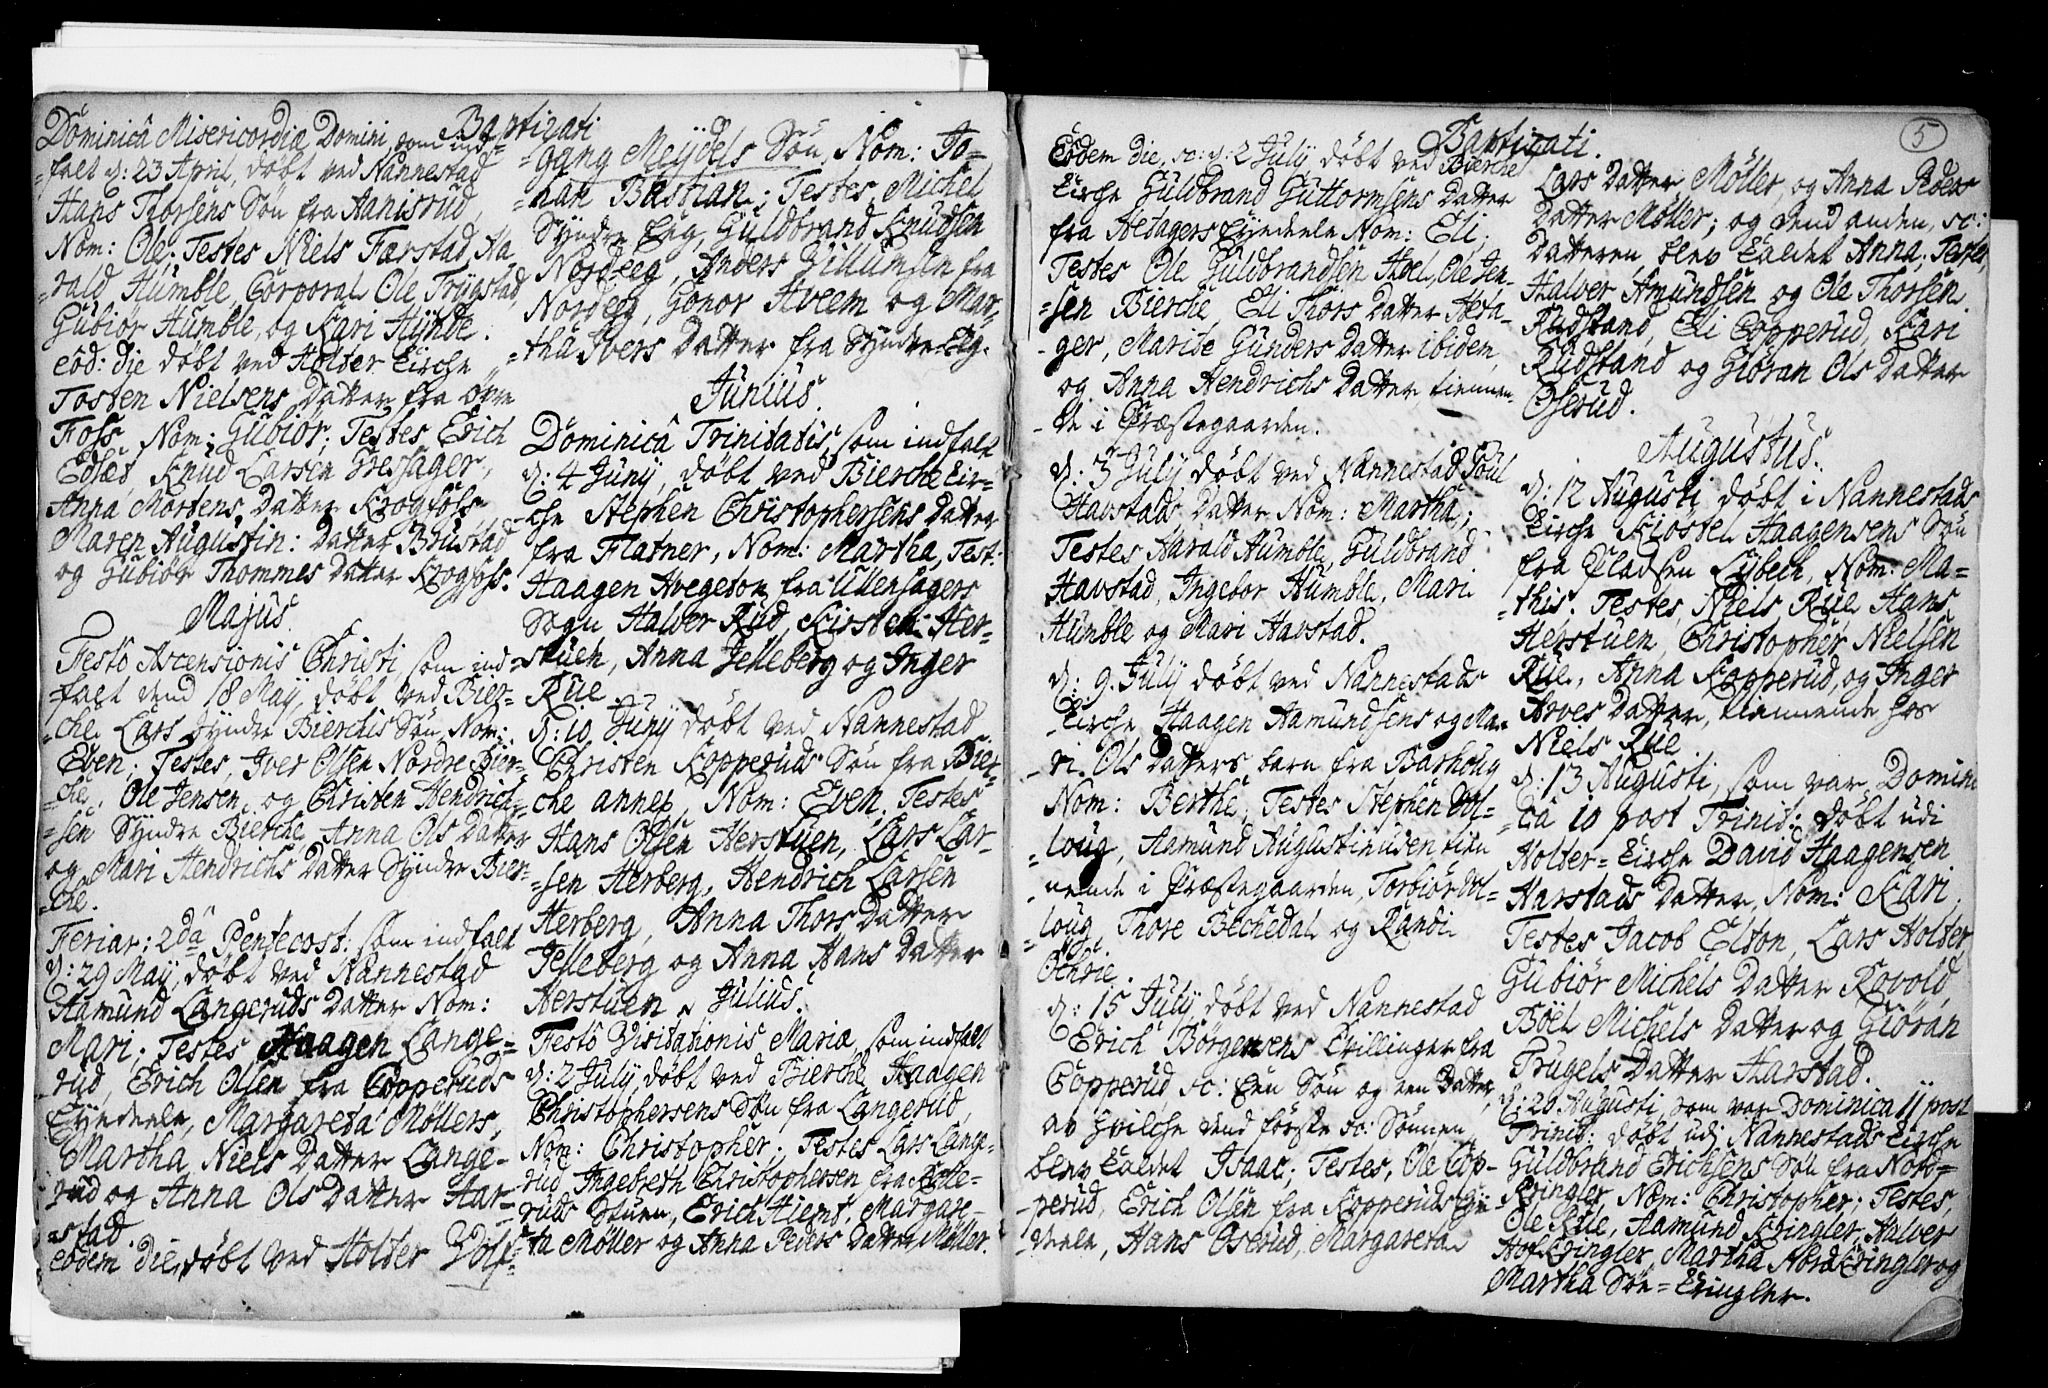 Baptizati
Dominicâ Misericordia Domini, som ind-
-falt d: 23 April, döbt ved Nannestad
Hans Thorsens Sön fra Aanisrud,
Nom: Ole; Testes Niels Færstad, Ha-
-rald Humble, Corporal Ole Trygstad,
Gubiör Humble, og Kari Hynde.
eod: die döbt ved Holter Kirche
Tosten Nielsens Datter fra övre
Foss, Nom: Gubiör; Testes Erich
Edsæt, Knud Larsen Gressager,
Anna Mortens Datter Krogfoss
Maren Augustin: Datter Brustad
og Gubiör Thommes Datter Krogfoss.
Majus.
Festo Ascensionis Christi, som ind-
falt dend 18 Maij, döbt ved Bier-
-che Lars Syndre Bierchis Sön, Nom:
Even; Testes, Iver Olsen Nordre Bier-
-che, Ole Jensen og Christen Hendrich-
-sen Syndre Bierche, Anna Ols Datter
og Mari Hendrichs Datter Syndre Bier-
-che.
Feriar: 2da Pentecost: som indfalt
d: 29 Maij, döbt ved Nannestad
Aamund Langeruds Datter Nom:
Mari; Testes Haagen Lange-
rud, Erich Olsen fra Copperuds
Eyndeele, Margareta Möllers,
Martha Niels Datter Lange-
rud og Anna Ols Datter Aar-
-stad.
eodem die, döbt ved Holter Wolf-
-gang Meydels Sön, Nom: Jo-
-han Bastian; Testes, Michel
Syndre Eeg, Guldbrand Knudsen
Nordeeg, Anders Gullumsen fra
Nordeeg, Gonor Hveem og Mar-
-tha Ivers Datter fra Syndre-Eeg.
Junius.
Dominicâ Trinitatis, som indfalt
d: 4 Juny, döbt ved Bierche Kir-
che Stephen Christophersens Datter
fra Flatner, Nom: Martha, Test:
Haagen Avegeton fra Ullensagers
Sogn, Halver Rud, Kirsten Her-
-stuen, Anna Jelleberg og Inger
Rue.
d: 10 Juny döbt ved Nannestad
Christen Kopperuds Sön fra Bier-
che annex, Nom: Even, Testes
Hans Olsen Herstuen, Lars Lar-
-sen Herberg, Hendrich Larsen
Herberg, Anna Thors Datter
Jelleberg og Anna Hans Datter
Herstuen.
Julius.
Festo Visitationis Mariæ, som indfalt
d: 2 July, döbt ved Bierche Haagen
Christophersens Sön fra Langerud
Nom: Christopher; Testes Lars Lange-
rud, Ingebreth Christophersen fra Kolle-
ruds Stuen, Erich Hiemt, Margare-
ta Möller og Anna Peders Datter Möller.
5
Baptizati.
Eodem die, sc: d: 2 July döbt ved Bierche
Kirche Guldbrand Guttormsens Datter
fra Aetagers Eyndeele Nom: Eli;
Testes Ole Guldbrandsen Hvel, Ole Jen-
-sen Bierche, Eli Thors Datter Aeta-
-ger, Marite Gunders Datter ibidem,
og Anna Hendrichs Datter tiennen-
-de i Præstegaarden.
d: 3 July döbt ved Nannestad Poul
Havstads Datter Nom: Martha;
Testes Harald Humble, Guldbrand
Havstad, Ingebor Humble, Mari
Humble og Mari Havstad.
d: 9 July döbt ved Nannestads
Kirche Haagen Aamundsens og Ma-
-ri Ols Datters barn fra Barhoug
Nom: Berthe, Testes Stephen Vol-
-loug, Aamund Augustinusen tien-
-nende i Præstegaarden, Torbiör Vol-
-loug, Thore Bechedal og Randi
Ochrie.
d: 15 July, döbt ved Nannestad
Erich Börgensens tvillinger fra
Copperud sc: Een Sön og een Datter,
av hvilche dend förste sc: Sönnen
blev kaldet Isaac; Testes, Ole Cop-
-perud, Erich Olsen fra Kopperuds Eyn
-deele, Hans Oserud, Margareta
Lars Datter Möller, og Anna Peders
Datter Möller; og dend anden, sc:
Datteren blev kaldet Anna; Testes,
Halver Amundsen og Ole Thorsen
Rudstand, Eli Copperud, Kari
Rudstand og Giöran Ols Datter
Oserud.
Augustus.
d: 12 Augusti döbt i Nannestads
Kirche Kiostel Haagensens Sön
fra Pladsen Lybech, Nom: Ma-
-this. Testes, Niels Rue, Hans
Herstuen, Christopher Nielsen
Rue, Anna Kopperud, og Inger
Arves Datter, tiennende hos
Niels Rue.
d: 13 Augusti, som var Domini
-câ 10 post Trinit: döbt udi
Holter-Kirche David Haagensen
Harstads Datter, Nom: Kari
Testes Jacob Elton, Lars Holter,
Gubiör Michels Datter Rovold,
Böel Michels Datter og Giöran
Trugels Datter Harstad.
d: 20 Augusti, som var Dominica 11 post
Trinit: döbt udj Nannestads Kirche
Guldbrand Erichsens Sön fra Nord-
-Kringler, Nom: Christopher; Testes,
Ole Rue, Aamund Kringler, Halver
Hofkringler, Martha Nordkringler og
Martha Söe-Kringler.